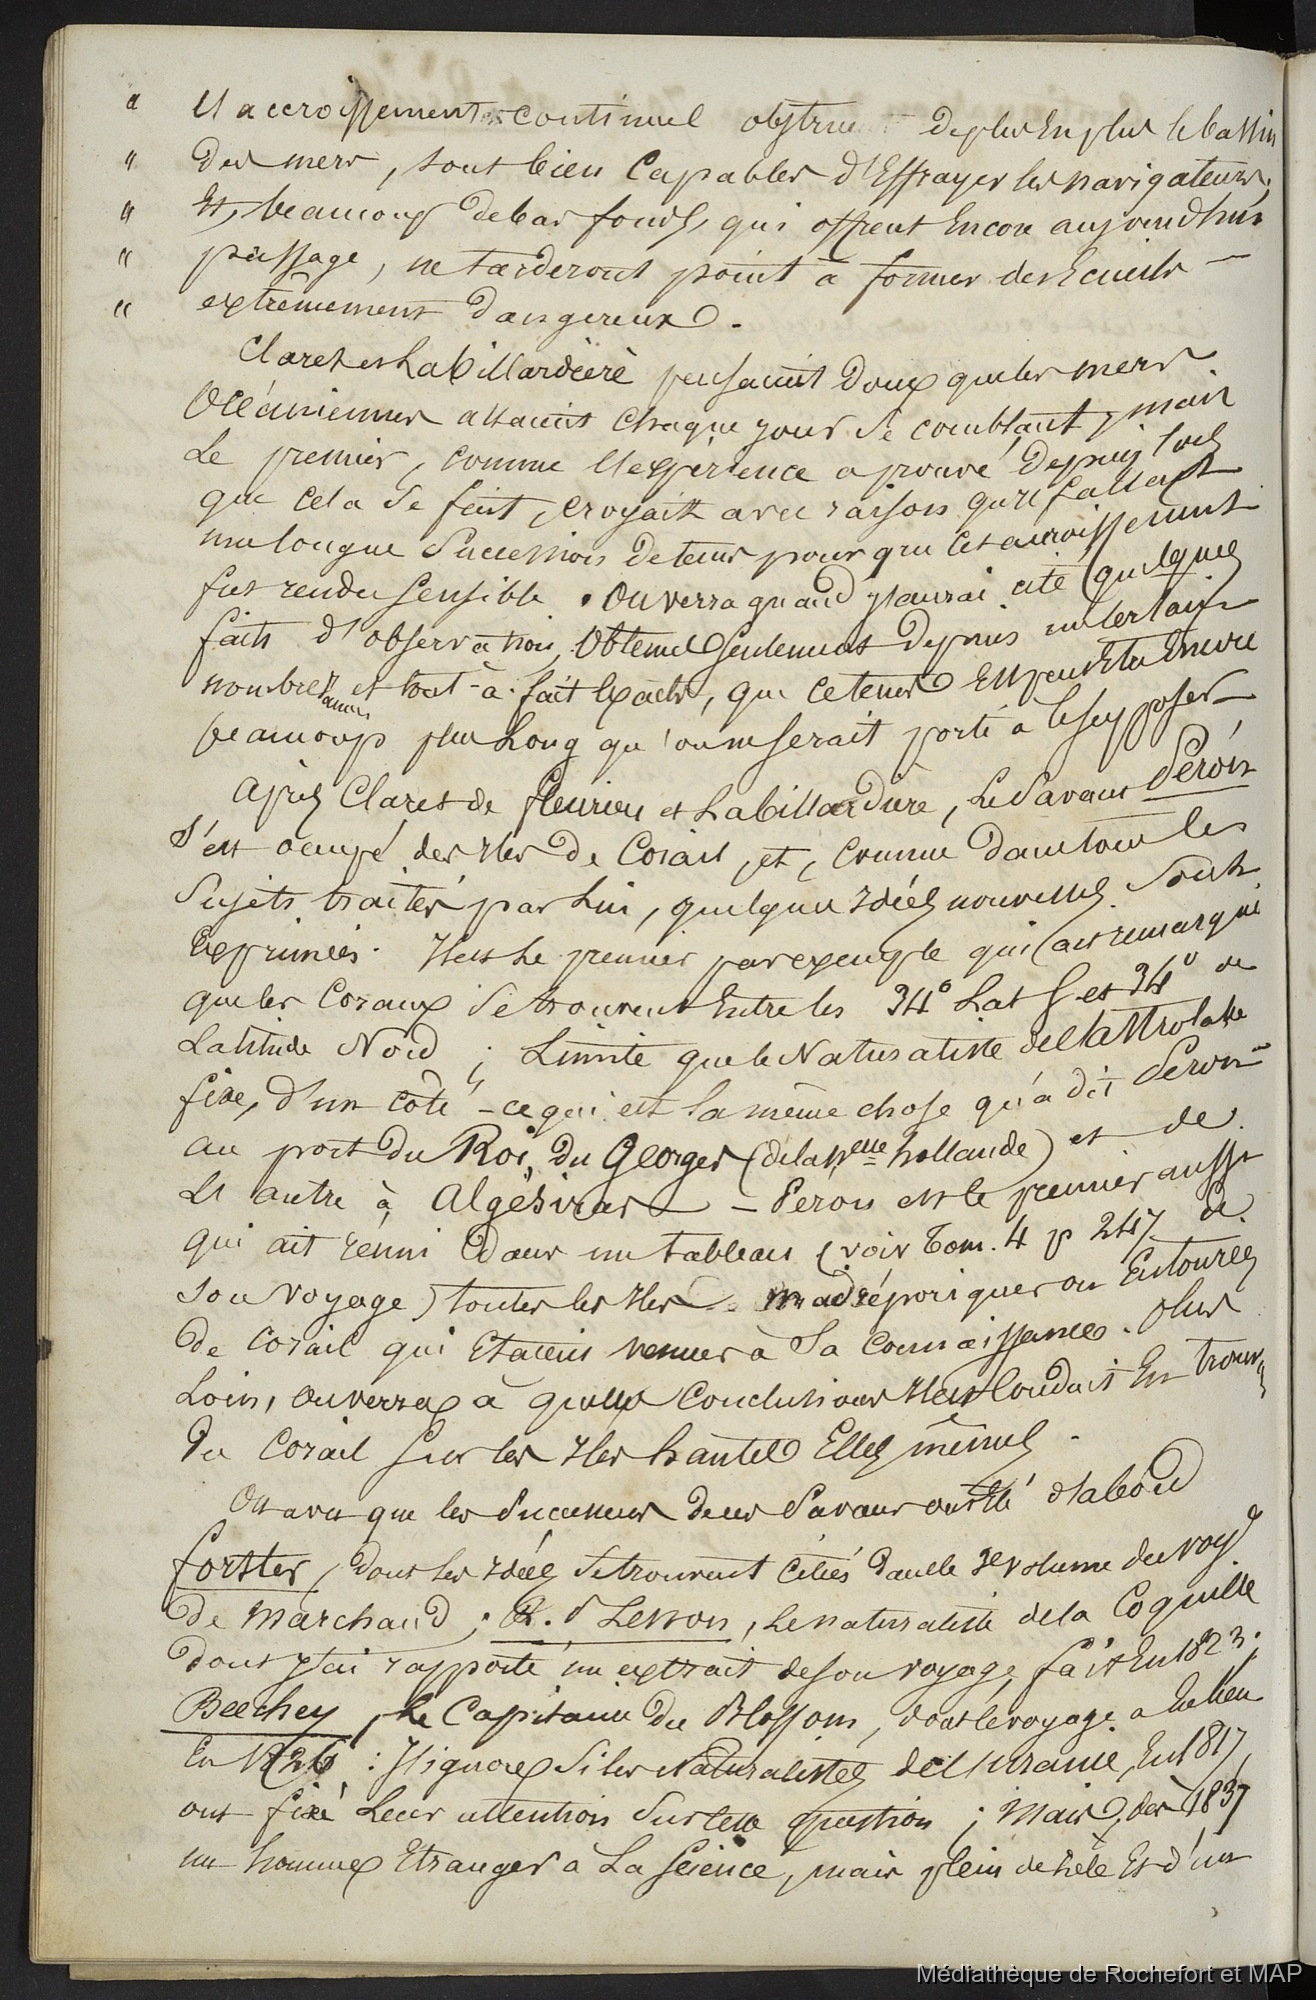 " l'accroissement continuel obstrue de plus En plus le bassin
" Des mers, sont bien Capables d'Effrayer les navigateurs,
" Et, beaucoup de bas fonds, qui offrent Encore aujourd'hui
" passage, ne tarderont point à former des Ecueils —
" extrêmement dangereux.
Claret et Labillardière pensaient Donc que les mers
Océaniennes allaient Chaque jour Se comblant, mais
Le premier, comme l'expérience a prouvé Depuis lors
que cela Se fait, croyait avec raison qu'il fallait
une longue Succession de tems pour que cet accroissement
fut rendu sensible. On verra quand j'aurai cité quelques
faits d'observation, Obtenus Seulement Depuis un certain
nombre d'années et tout-à-fait Exacts, que ce tems Est peut Etre Encore
beaucoup plus Long qu'on ne serait porté à le supposer
Après Claret de fleurieu et Labillardière, Le Savant Péron
S'est occupé des Iles De Corail, et, Comme dans tous les
Sujets traités par Lui, quelques Idées nouvelles Sont
Exprimées. Il est Le premier par exemple qui ait remarqué
que les Coraux Se trouvent Entre les 34° Lat S et 34° de
Latitude Nord ; Limite que le Naturaliste de l'astrolabe
fixe, d'un côté - ce qui est la même chose qu'a dit Péron -
au port du Roi du Georges (de la Nelle hollande) et de
L'autre à Algésiras - Péron est le premier aussi
qui ait réuni Dans un tableau (voir Tom. 4 p 247 de
son voyage) toutes les Iles madréporiques ou Entourées
de corail qui Etaient venues à Sa connaissance. Plus
Loin, on verra à quelles Conclusions Il est Conduit En trouvant
Du Corail Sur les Iles hautes Elles mêmes.
On a vu que les Successeurs de ces Savans ont été d'abord
forster, Dont les Idées Se trouvent citées dans le 3e volume du voye
De Marchand ; R. P Lesson, Le naturaliste de la Coquille
dont j'ai rapporté un extrait de son voyage fait En 1823 ;
Beechey, Le Capitaine du Blossom, dont le voyage a Eu lieu
En 1826 : J'ignore Si les Naturalistes de l'Uranie, En 1817,
ont fixé Leur attention Sur cette question ; Mais, dès 1837
un homme Etranger à La Science, mais plein de zèle Et d'un
Médiathèque de Rochefort et MAP